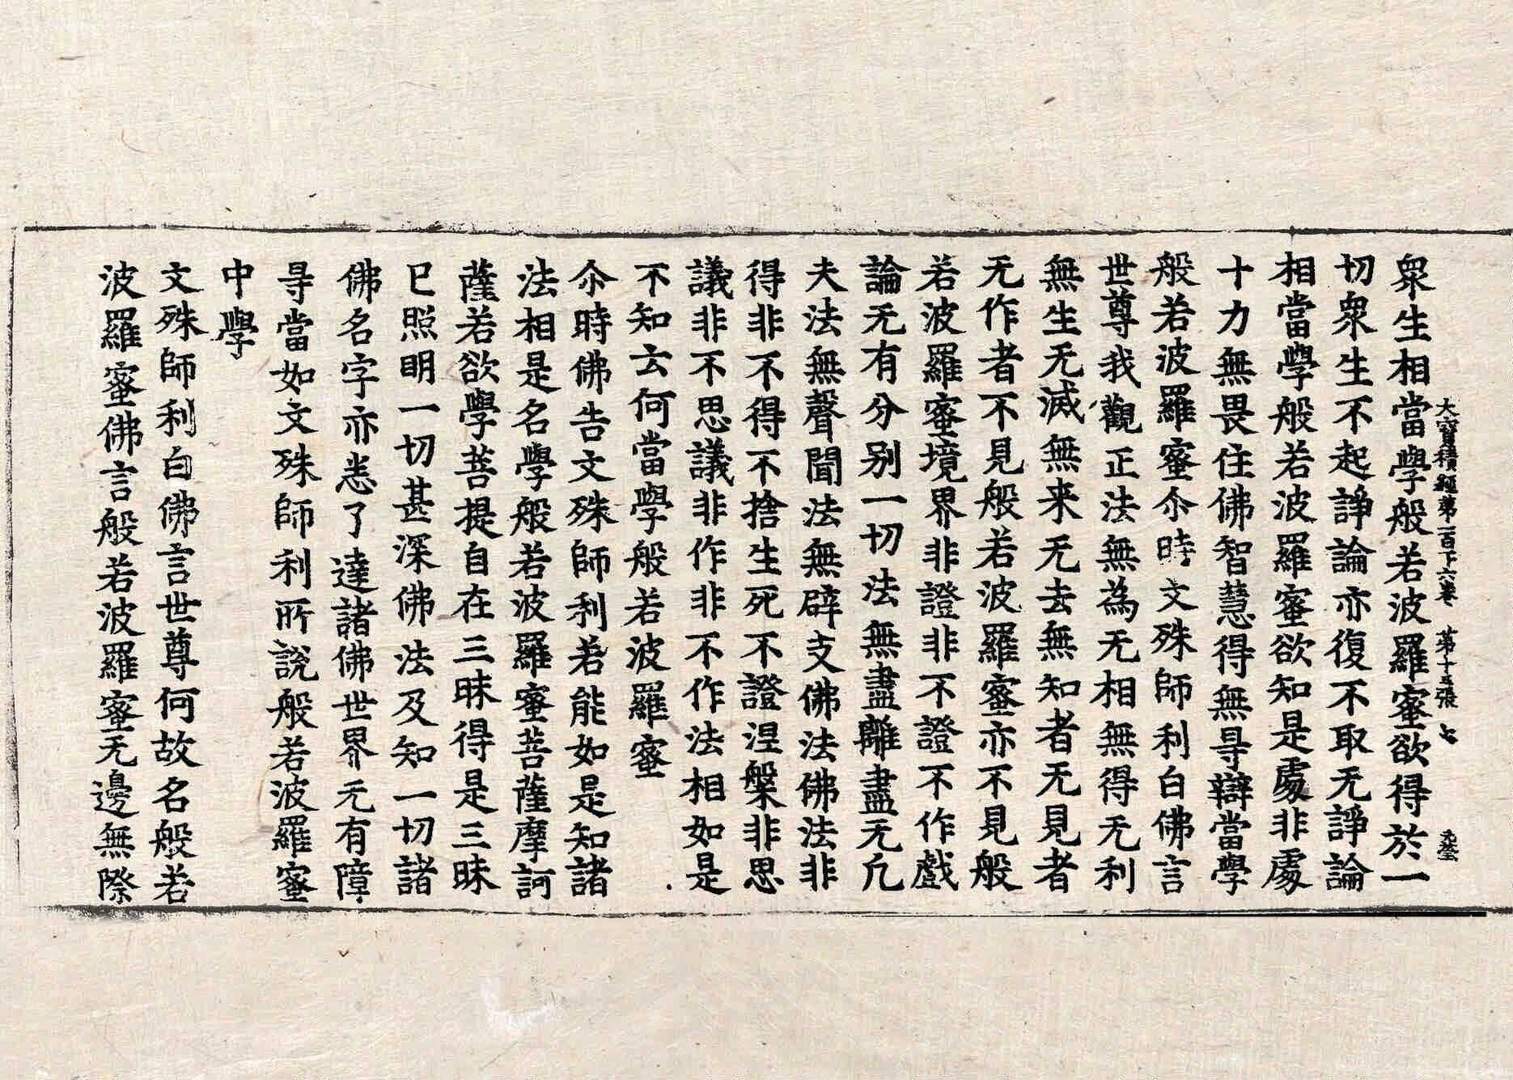 大寶積經第一百十六卷　第十五張
衆生相當學般若波羅蜜欲得於一
切衆生不起諍論亦復不取无諍論
相當學般若波羅蜜欲知是處非處
十力無畏住佛智慧得無㝵辯當學
般若波羅蜜尒時文殊師利白佛言
世尊我觀正法無為无相無得无利
無生无滅無来无去無知者无見者
无作者不見般若波羅蜜亦不見般
若波羅蜜境界非證非不證不作戲
論无有分别一切法無盡離盡无凢
夫法無聲聞法無辟支佛法佛法非
得非不得不捨生死不證涅槃非思
議非不思議非作非不作法相如是
不知云何當學般若波羅蜜
尒時佛告文殊師利若能如是知諸
法相是名學般若波羅蜜菩薩摩訶
薩若欲學菩提自在三昧得是三昧
已照明一切甚深佛法及知一切諸
佛名字亦悉了達諸佛世界无有障
㝵當如文殊師利所說般若波羅蜜
中學
文殊師利白佛言世尊何故名般若
波羅蜜佛言般若波羅蜜无邊無際